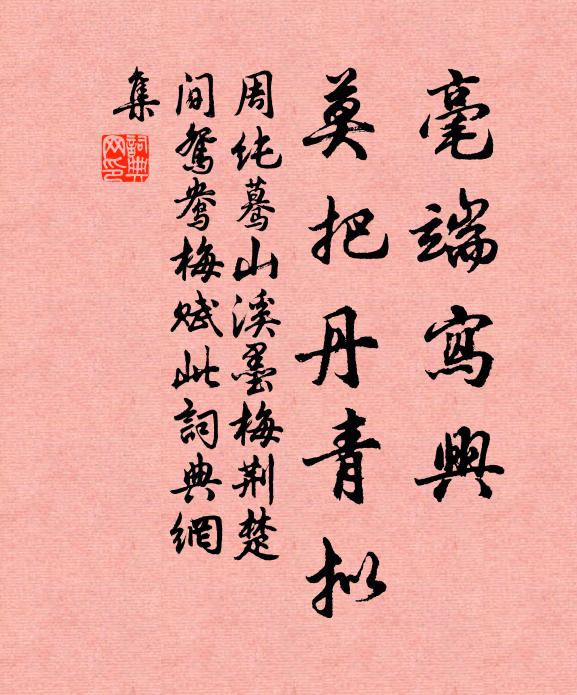 毫端寫興
莫把丹青拟
周純蓦山溪墨梅荆楚
间鸳鸯梅赋此詞典網
集
詞典网印